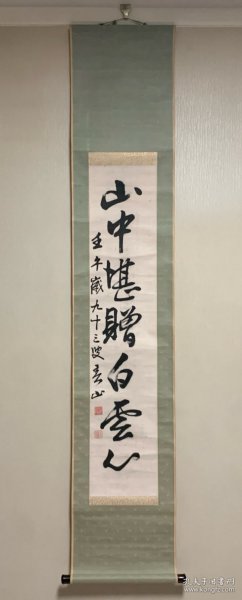 山中堪贈白雲心
壬午歲九十三叟春山
孔夫子旧书网